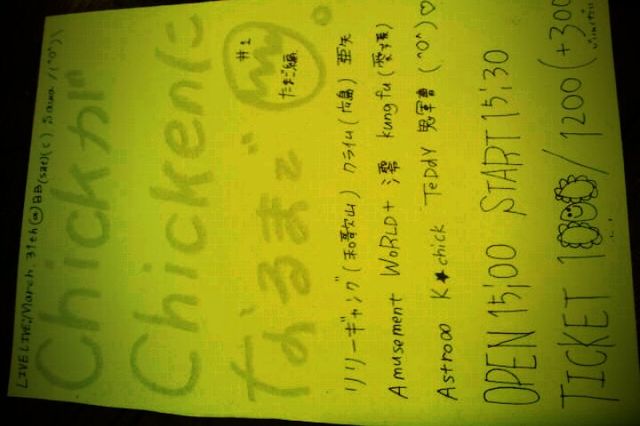 LIVE LIVE!/March 31th
Chickが
Chickenに
なるまで。
#1
たまご編
リリーギャング(和歌山) クライム(広島) 亜矢
Amusement WORLD+ 澪 kungfu(愛媛)
Astro∞ K★chick TeDDY 鬼軍曹 (^o^)♡
OPEN 15:00 START 15:30
TICKET 1000/1200 (+300